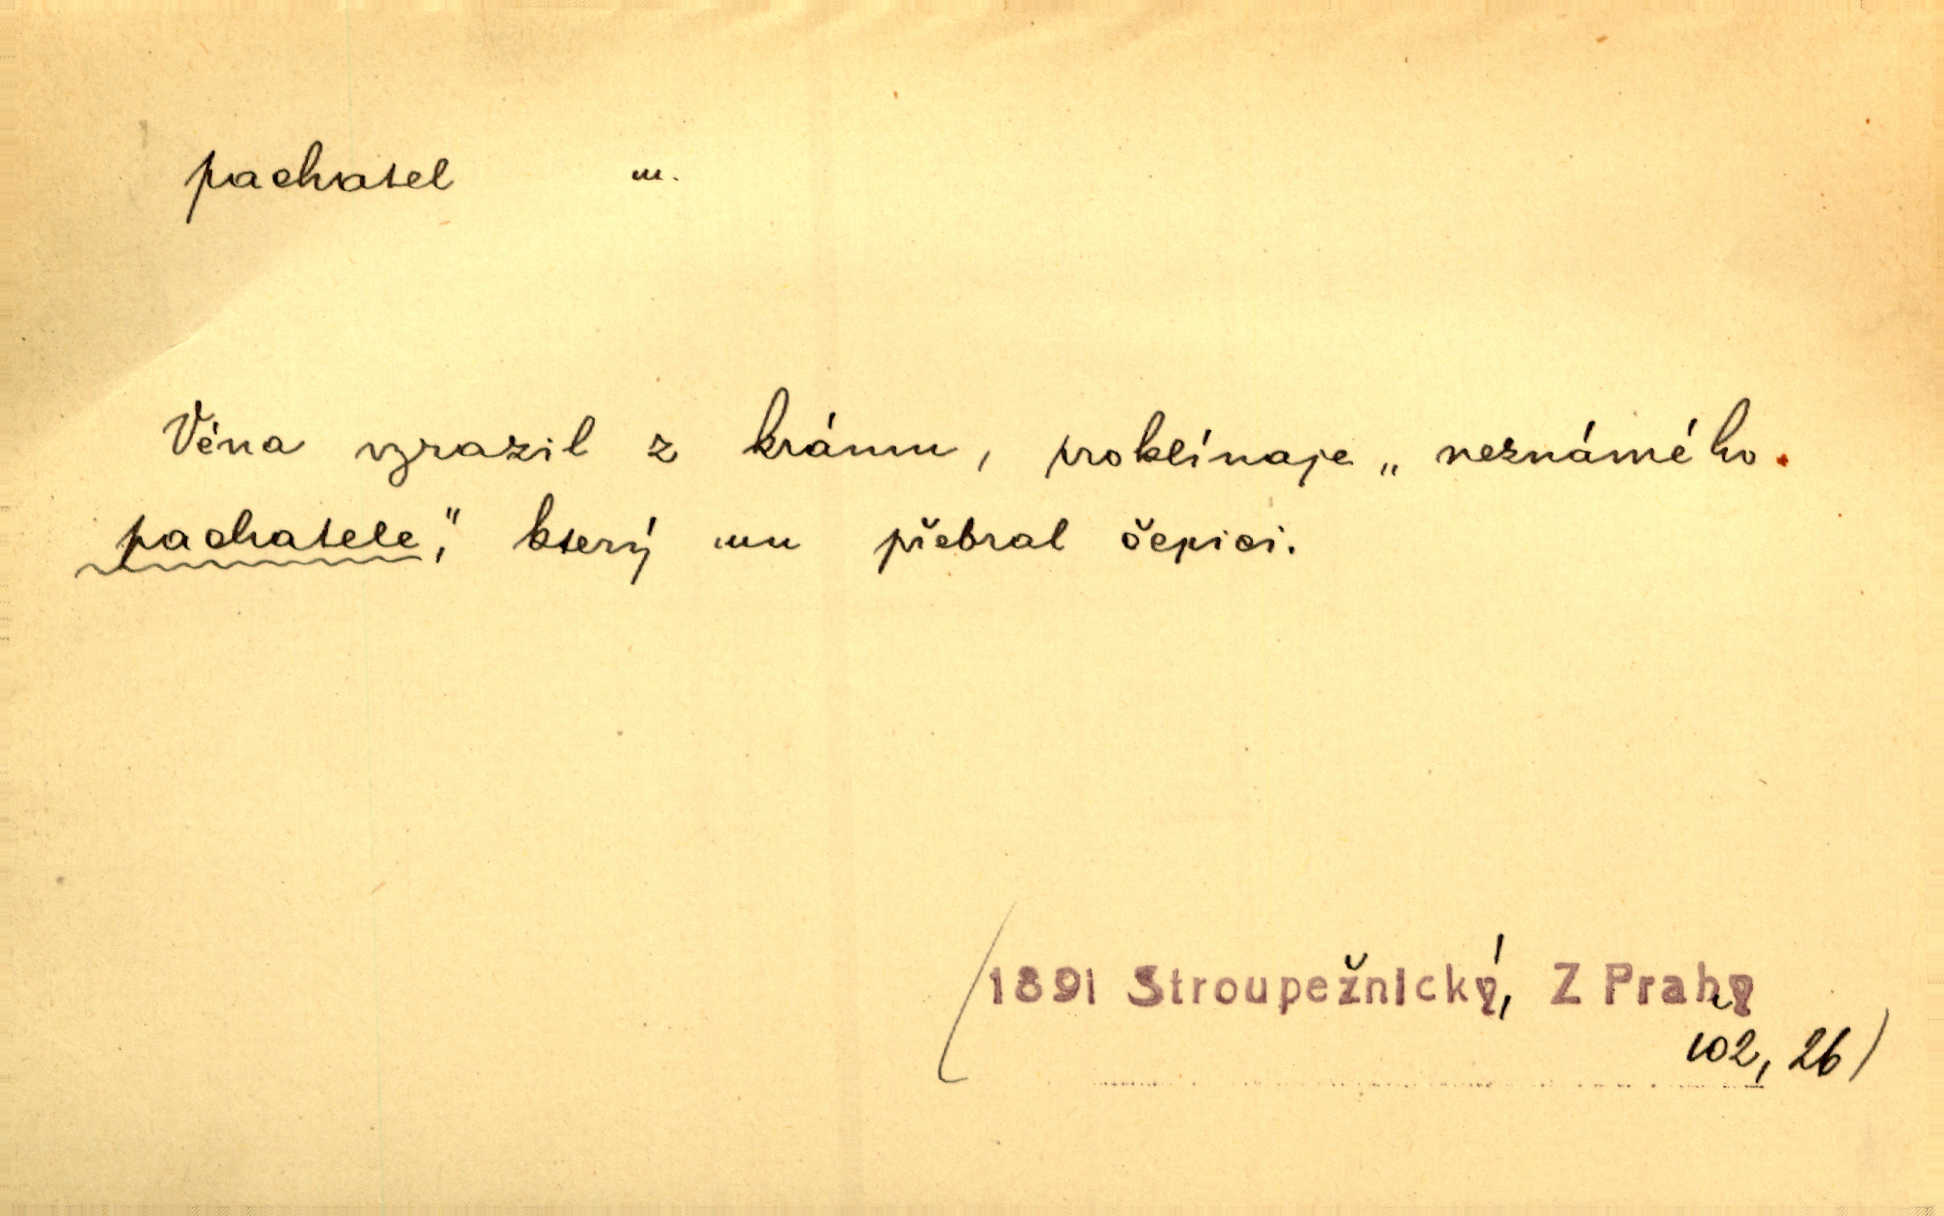 pachatel m.
Véna vyrazil z krámu, proklínaje „neznámého
pachatele," který mu přebral čepici.
(1891 Stroupežnický, Z Prahy
102, 26)